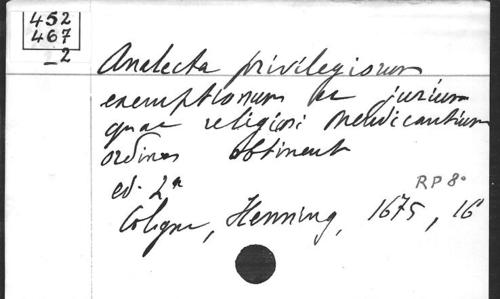 452
467
_2
Analecta privilegiorum
exemptionum ac jurium
quae religiosi mendicantium
ordines obtinent
ed. 2a
RP 8°
Cologne, Henning, 1675, 16°